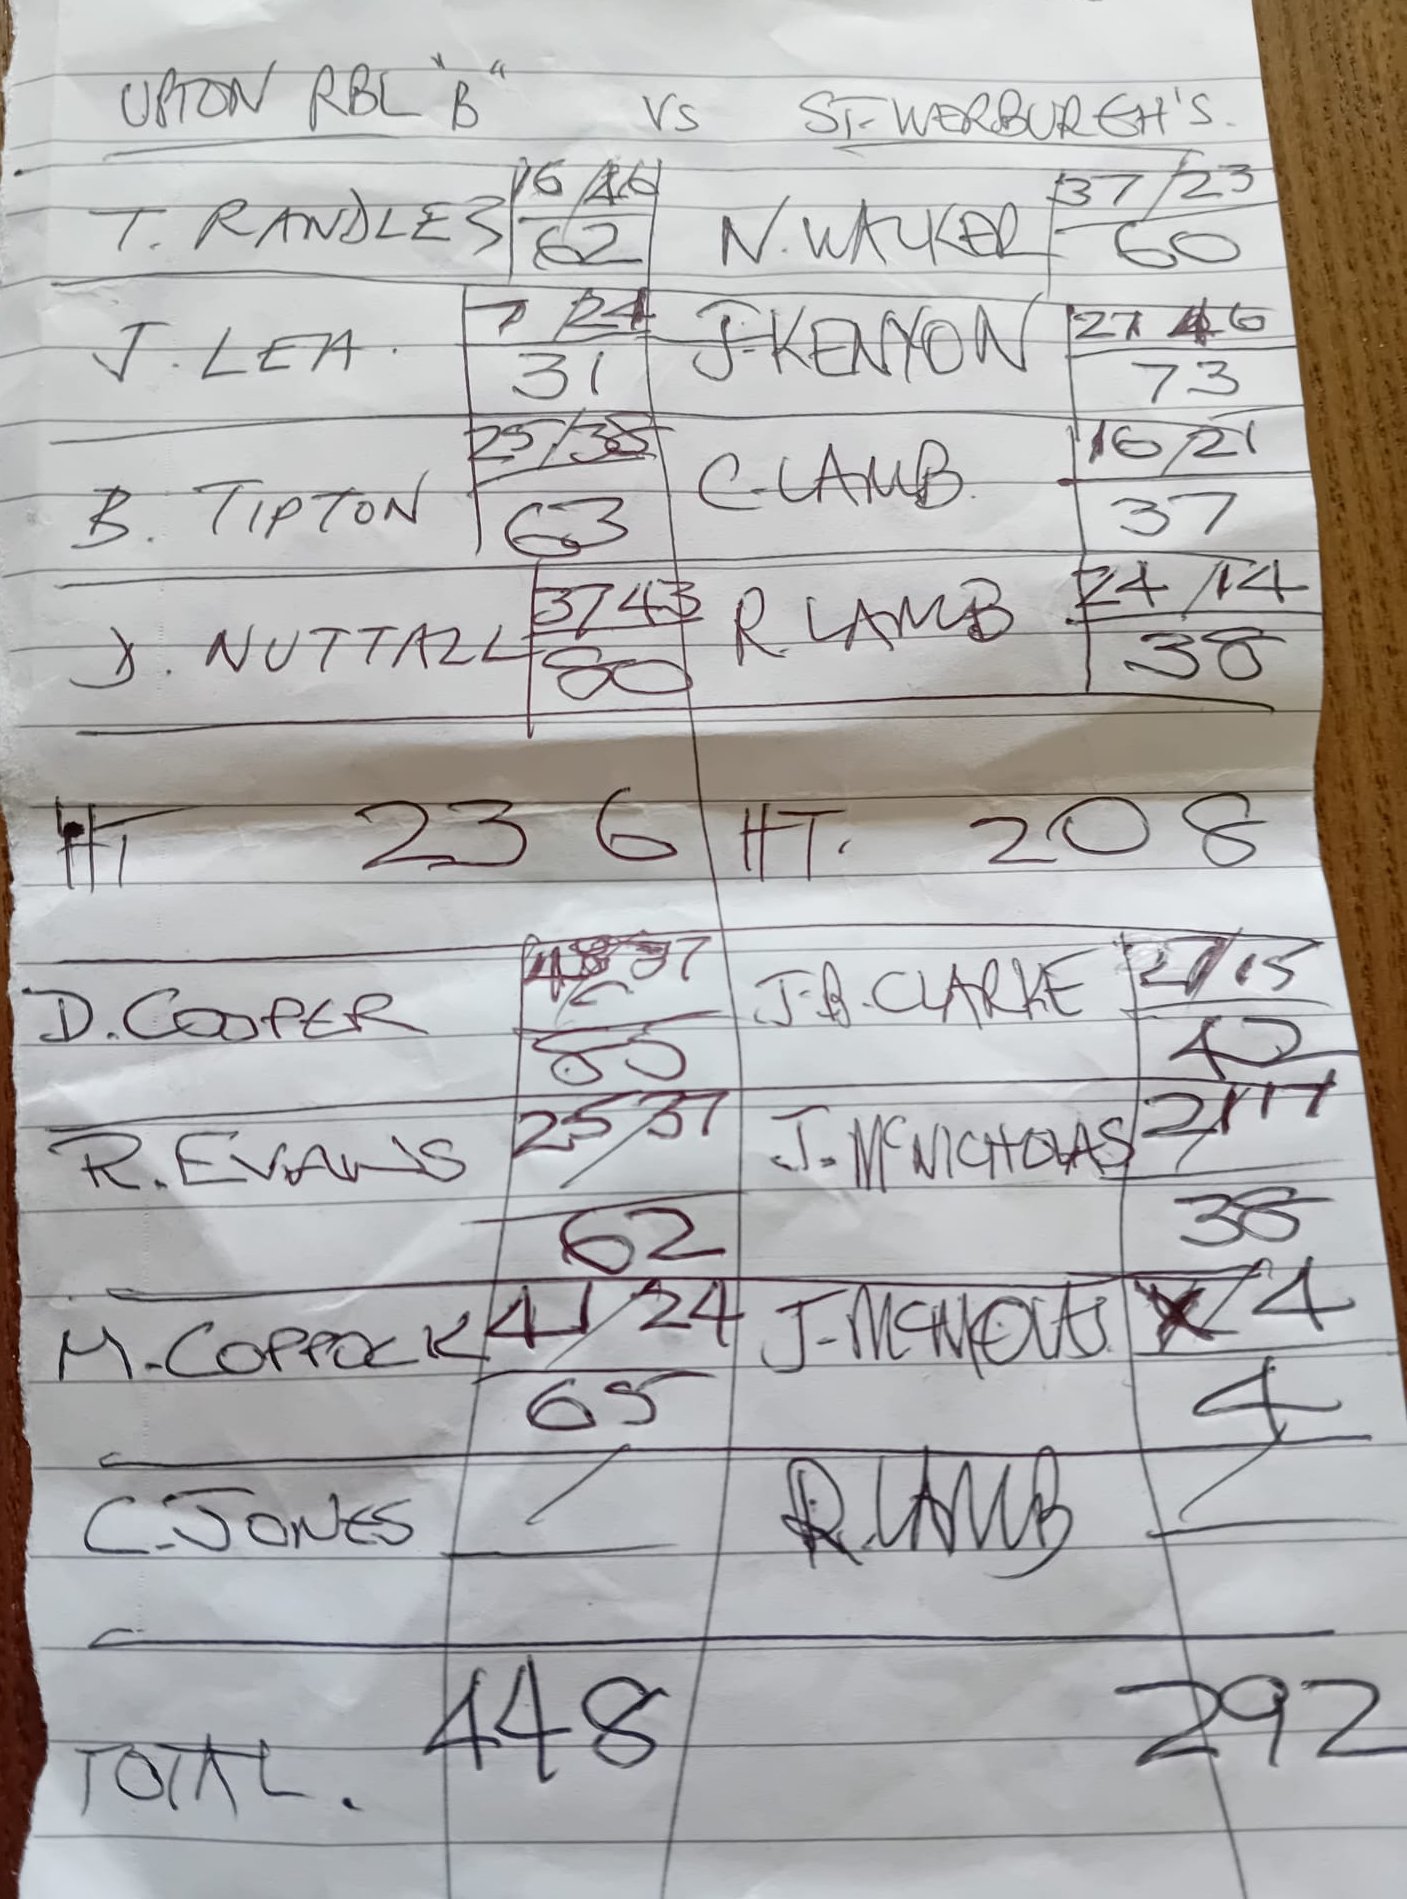 UPTON RBL "B" VS ST-WERBURGH'S.
T. RANDLES 16/46 N. WALKER 37/23
62 60
J. LEA. 7/24 J-KENYON 27 46
31 73
B. TIPTON 25/38 C-LAMB. 16/21
63 37
D. NUTTALL 37/43 R. LAMB 24/14
80 38
HT 236 HT. 208
D. COOPER 48/37 J.B. CLARKE 27/15
85 42
R. EVANS 25/37 J. McNICHOLAS 21/17
62 38
M. COPPOCK 41/24 /4
65 4
C. JONES / R. LAMB /
TOTAL. 448 292